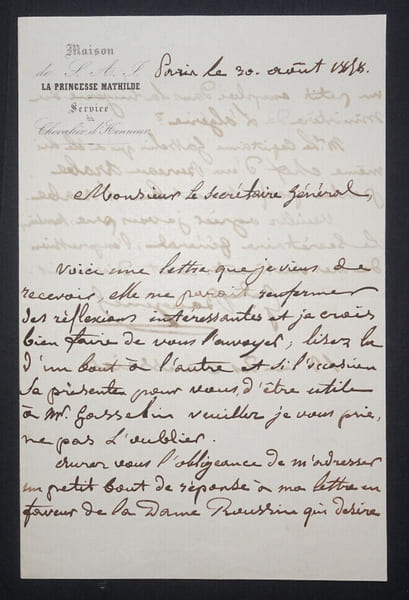 Maison
de S. A. I.
LA PRINCESSE MATHILDE
Service
du
Chevalier d'Honneur
Paris le 30. août 1858.
Monsieur le secrétaire Général,
Voici une lettre que je viens de
recevoir, elle me parait renfermer
des réflexions intéressantes et je crois
bien faire de vous l'envoyer; lisez la
d'un bout à l'autre et si l'occasion
se présente pour vous, d'être utile
à Mr. Gosselin veuillez je vous prie,
ne pas l'oublier.
aurez vous l'obligeance de m'adresser
un petit bout de réponse à ma lettre en
faveur de la Dame Roussin qui désire